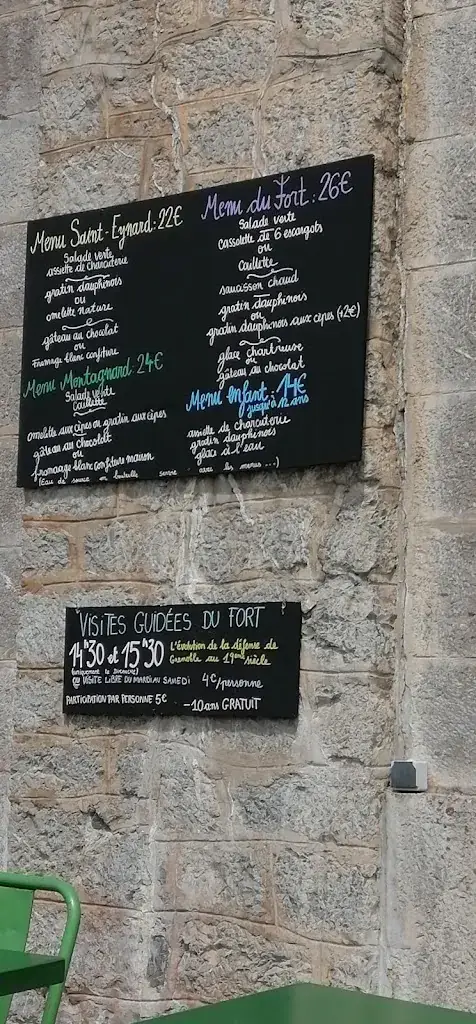 Menu Saint-Eynard: 22€
Salade verte
assiette de charcuterie
gratin dauphinois
ou
omelette nature
gâteau au chocolat
ou
Fromage blanc confiture
Menu Montagnard: 24€
Salade verte
Caillette
omelette aux cèpes ou gratin aux cèpes
gâteau au chocolat
ou
fromage blanc confiture maison
Menu du Fort: 26€
Salade verte
Cassolette de 6 escargots
ou
Caillette
saucisson chaud
gratin dauphinois
ou
gratin dauphinois aux cèpes (+2€)
glace chartreuse
ou
gâteau au chocolat
Menu enfant: 14€
jusqu'à 12 ans
assiette de charcuterie
gratin dauphinois
glace à l'eau
(Eau de source en bouteille avec les menus...)
VISITES GUIDÉES DU FORT
14h30 et 15h30
L'évolution de la défense de
Grenoble au 19ème siècle
uniquement le dimanche
ou VISITE LIBRE DU MARDI AU SAMEDI 4€/personne
PARTICIPATION PAR PERSONNE 5€ -10 ans GRATUIT